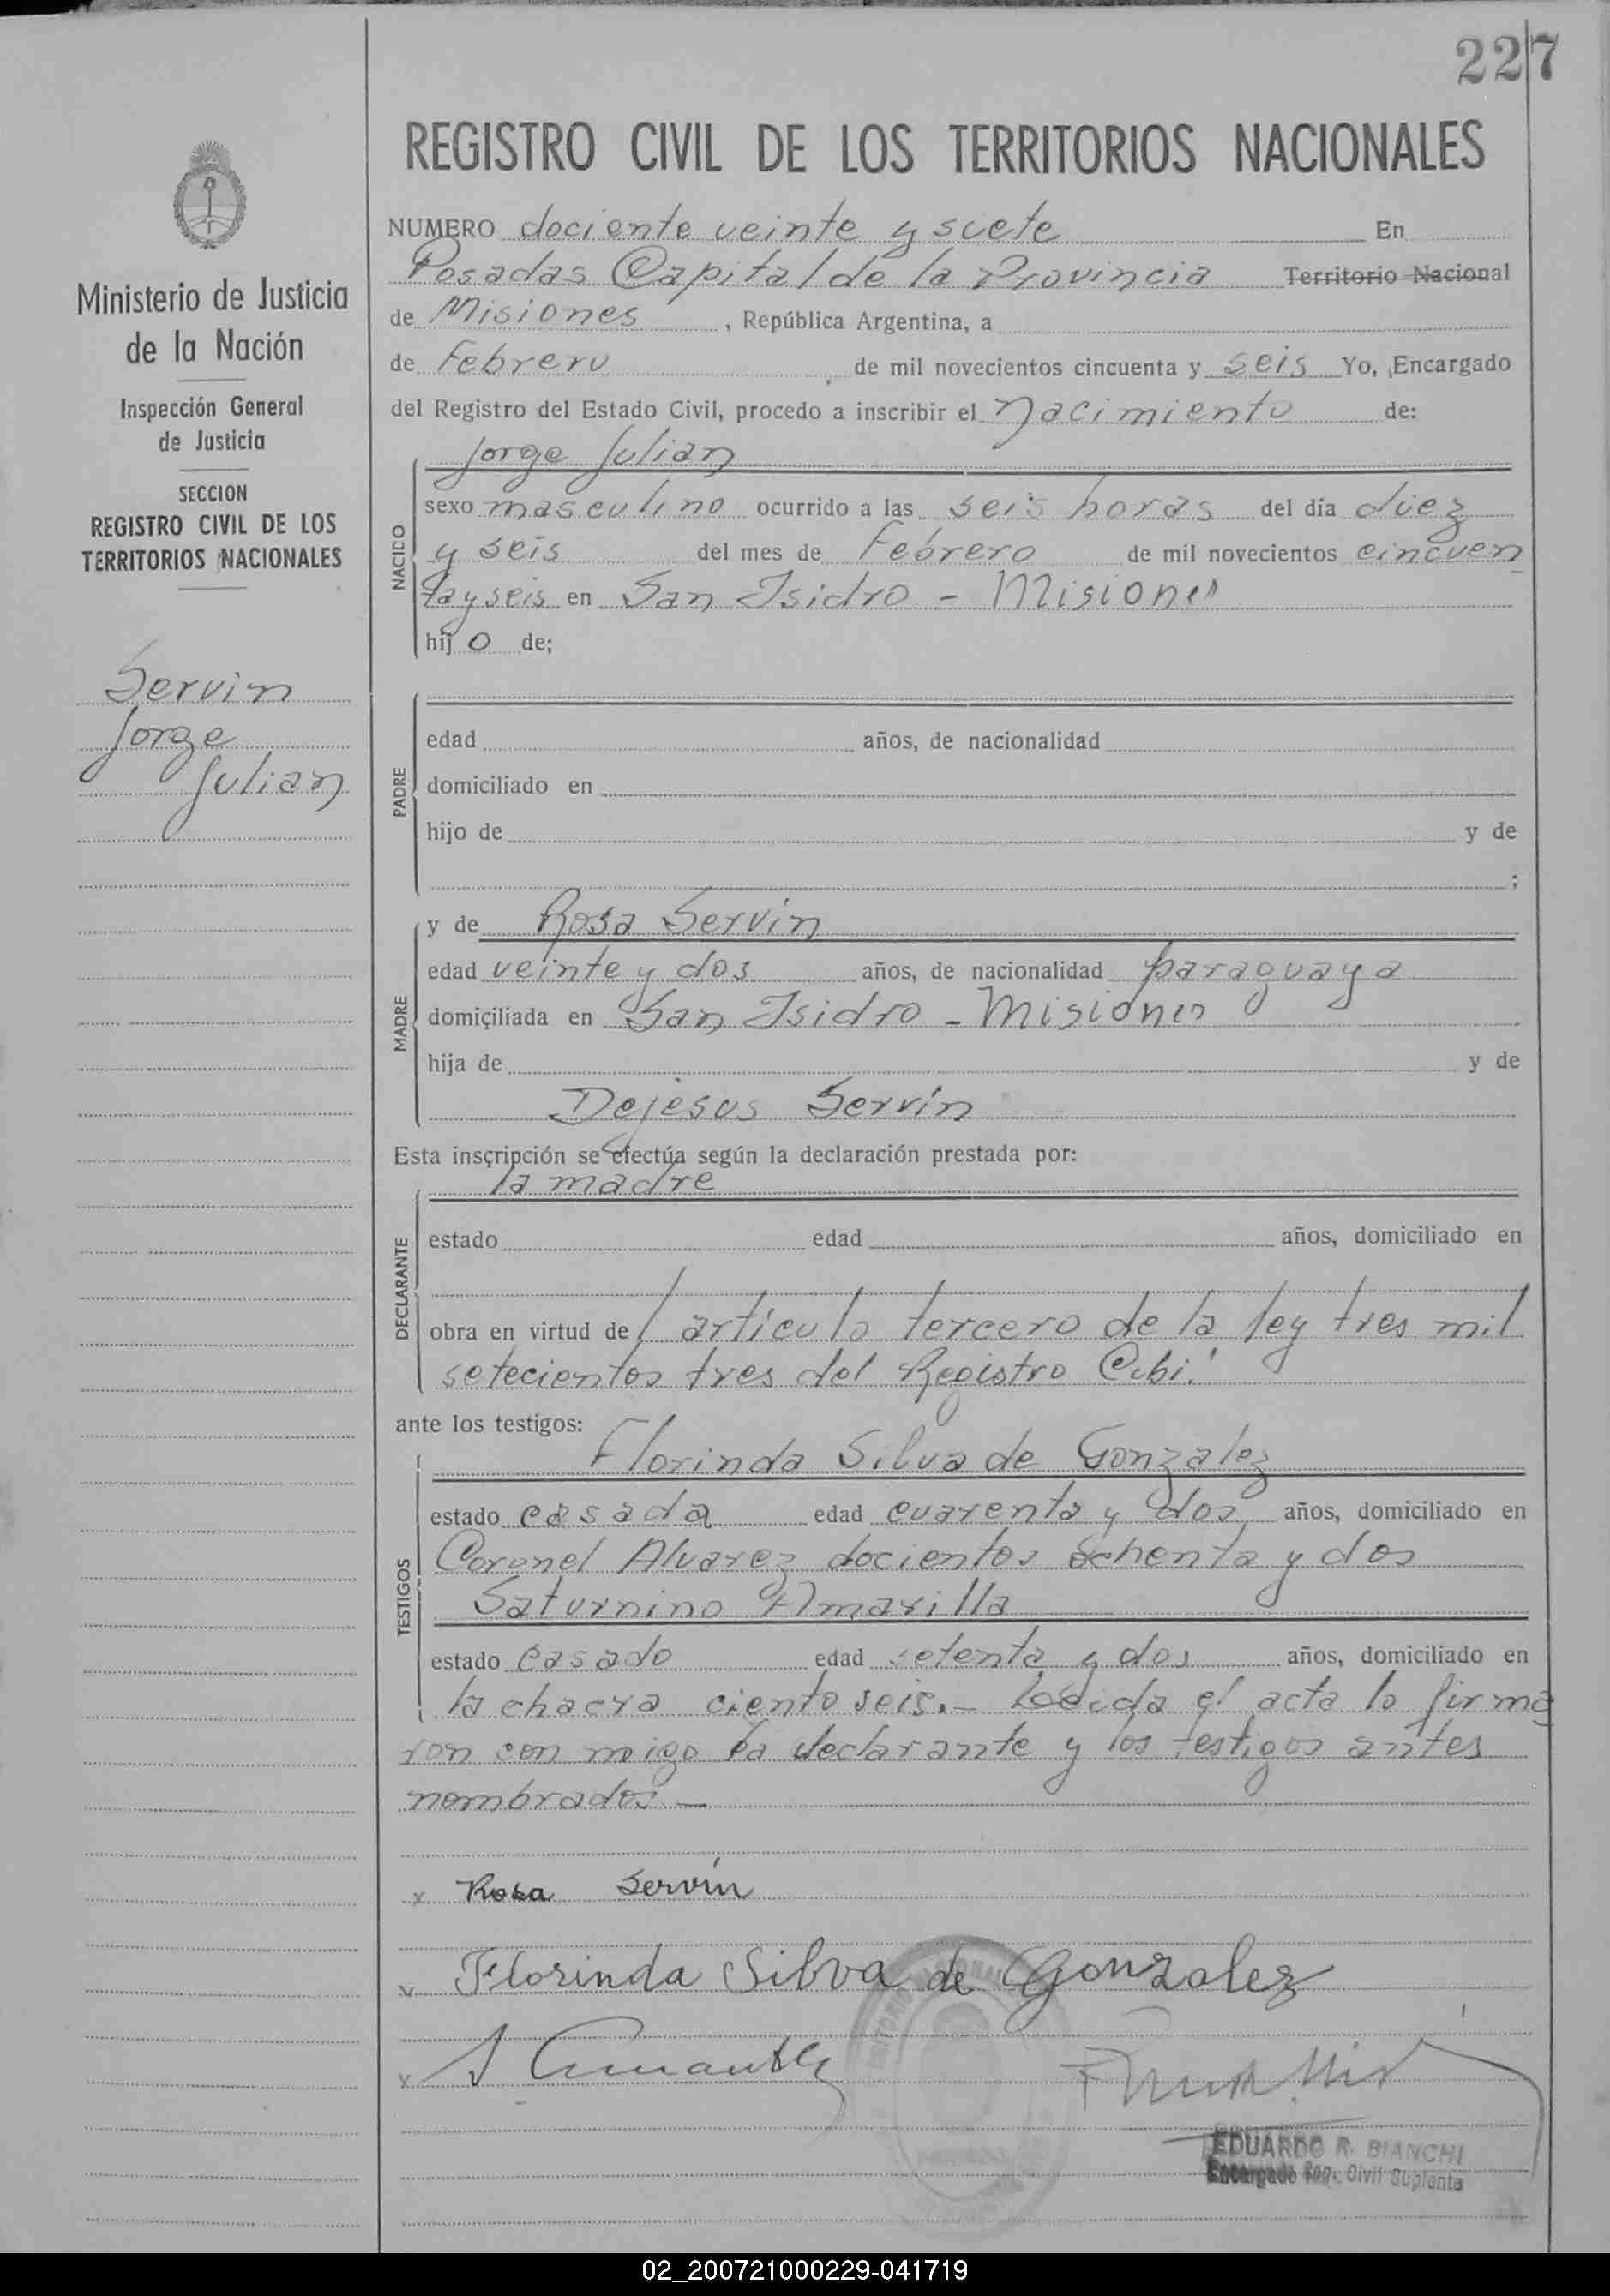 227
REGISTRO CIVIL DE LOS TERRITORIOS NACIONALES
Ministerio de Justicia
de la Nación
Inspección General
de Justicia
SECCION
REGISTRO CIVIL DE LOS
TERRITORIOS NACIONALES
Servin
Jorge
Julian
NUMERO dociente veinte y siete En
Posadas Capital de la Provincia Territorio Nacional
de Misiones, República Argentina, a
de Febrero, de mil novecientos cincuenta y seis Yo, Encargado
del Registro del Estado Civil, procedo a inscribir el Nacimiento de:
Jorge Julian
NACIDO
sexo masculino ocurrido a las seis horas del día diez
y seis del mes de Febrero de mil novecientos cincuen
tayseis en San Isidro - Misiones
hijo de;
PADRE
edad años, de nacionalidad
domiciliado en
hijo de y de
;
MADRE
y de Rosa Servin
edad veinte y dos años, de nacionalidad paraguaya
domiciliada en San Isidro - Misiones
hija de y de
Dejesus Servín
Esta inscripción se efectúa según la declaración prestada por:
la madre
DECLARANTE
estado edad años, domiciliado en
obra en virtud del articulo tercero de la ley tres mil
setecientos tres del Registro Cibil
ante los testigos:
Florinda Silva de Gonzalez
TESTIGOS
estado casada edad cuarenta y dos años, domiciliado en
Coronel Alvarez docientos ochenta y dos
Saturnino Amarilla
estado casado edad setenta y dos años, domiciliado en
la chacra ciento seis.- el acta la firma
ron con migo la declarante y los testigos antes
nombrados -
x Rosa Servín
v Florinda Silva de Gonzalez
v S
EDUARDO R. BIANCHI
Encargado Reg. Civil Suplente
02_200721000229-041719